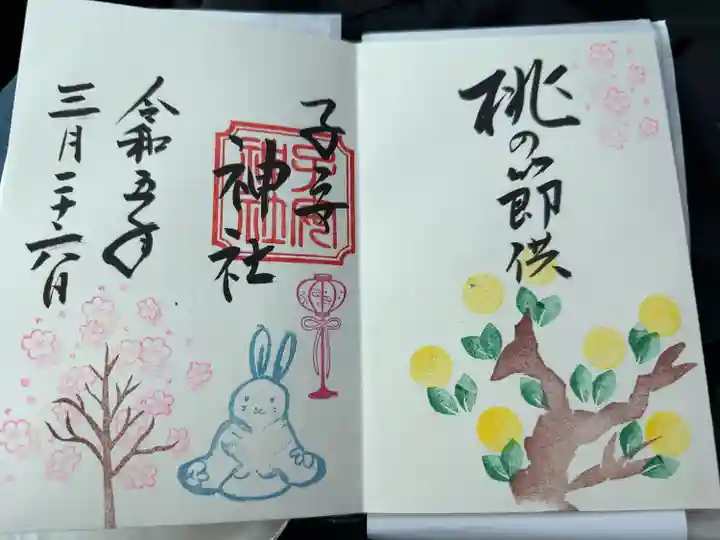 桃の節供
子安
神社
令和五年
三月二十六日
子安
神社